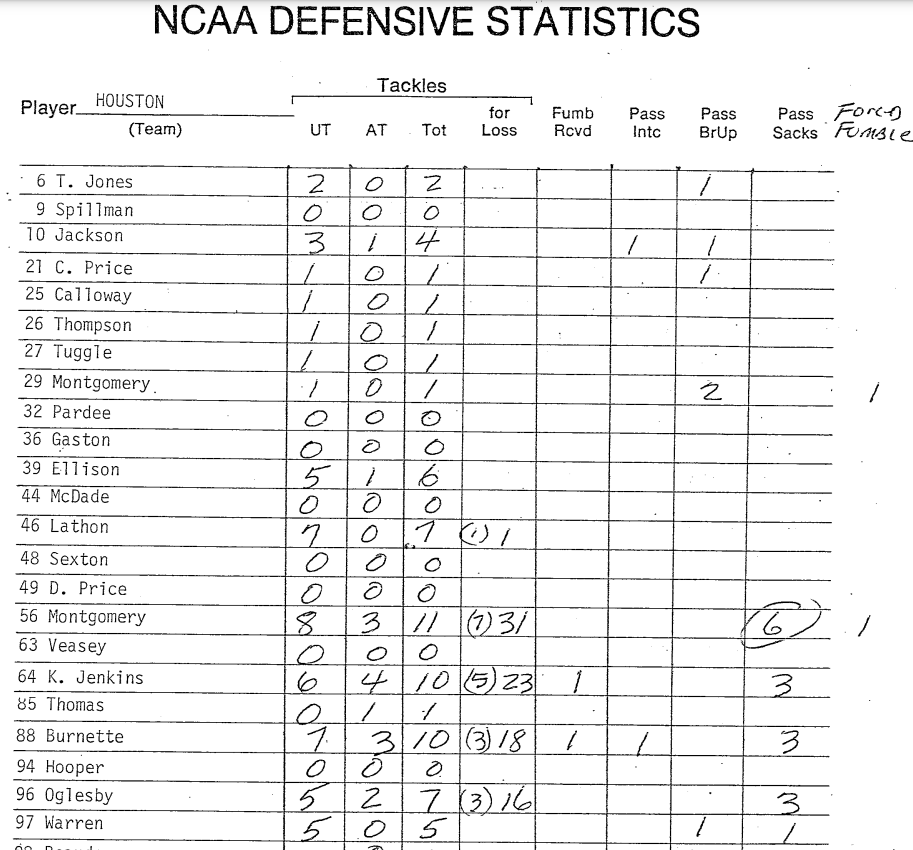 NCAA DEFENSIVE STATISTICS
Tackles
Player HOUSTON for Fumb Pass Pass Pass Forced
(Team) UT AT Tot Loss Rcvd Intc BrUp Sacks Fumble
6 T. Jones 2 0 2 1
9 Spillman 0 0 0
10 Jackson 3 1 4 1 1
21 C. Price 1 0 1 1
25 Calloway 1 0 1
26 Thompson 1 0 1
27 Tuggle 1 0 1
29 Montgomery 1 0 1 2 1
32 Pardee 0 0 0
36 Gaston 0 0 0
39 Ellison 5 1 6
44 McDade 0 0 0
46 Lathon 7 0 7 (1) 1
48 Sexton 0 0 0
49 D. Price 0 0 0
56 Montgomery 8 3 11 (7) 31 6 1
63 Veasey 0 0 0
64 K. Jenkins 6 4 10 (5) 23 1 3
85 Thomas 0 1 1
88 Burnette 7 3 10 (3) 18 1 1 3
94 Hooper 0 0 0
96 Oglesby 5 2 7 (3) 16 3
97 Warren 5 0 5 1 1